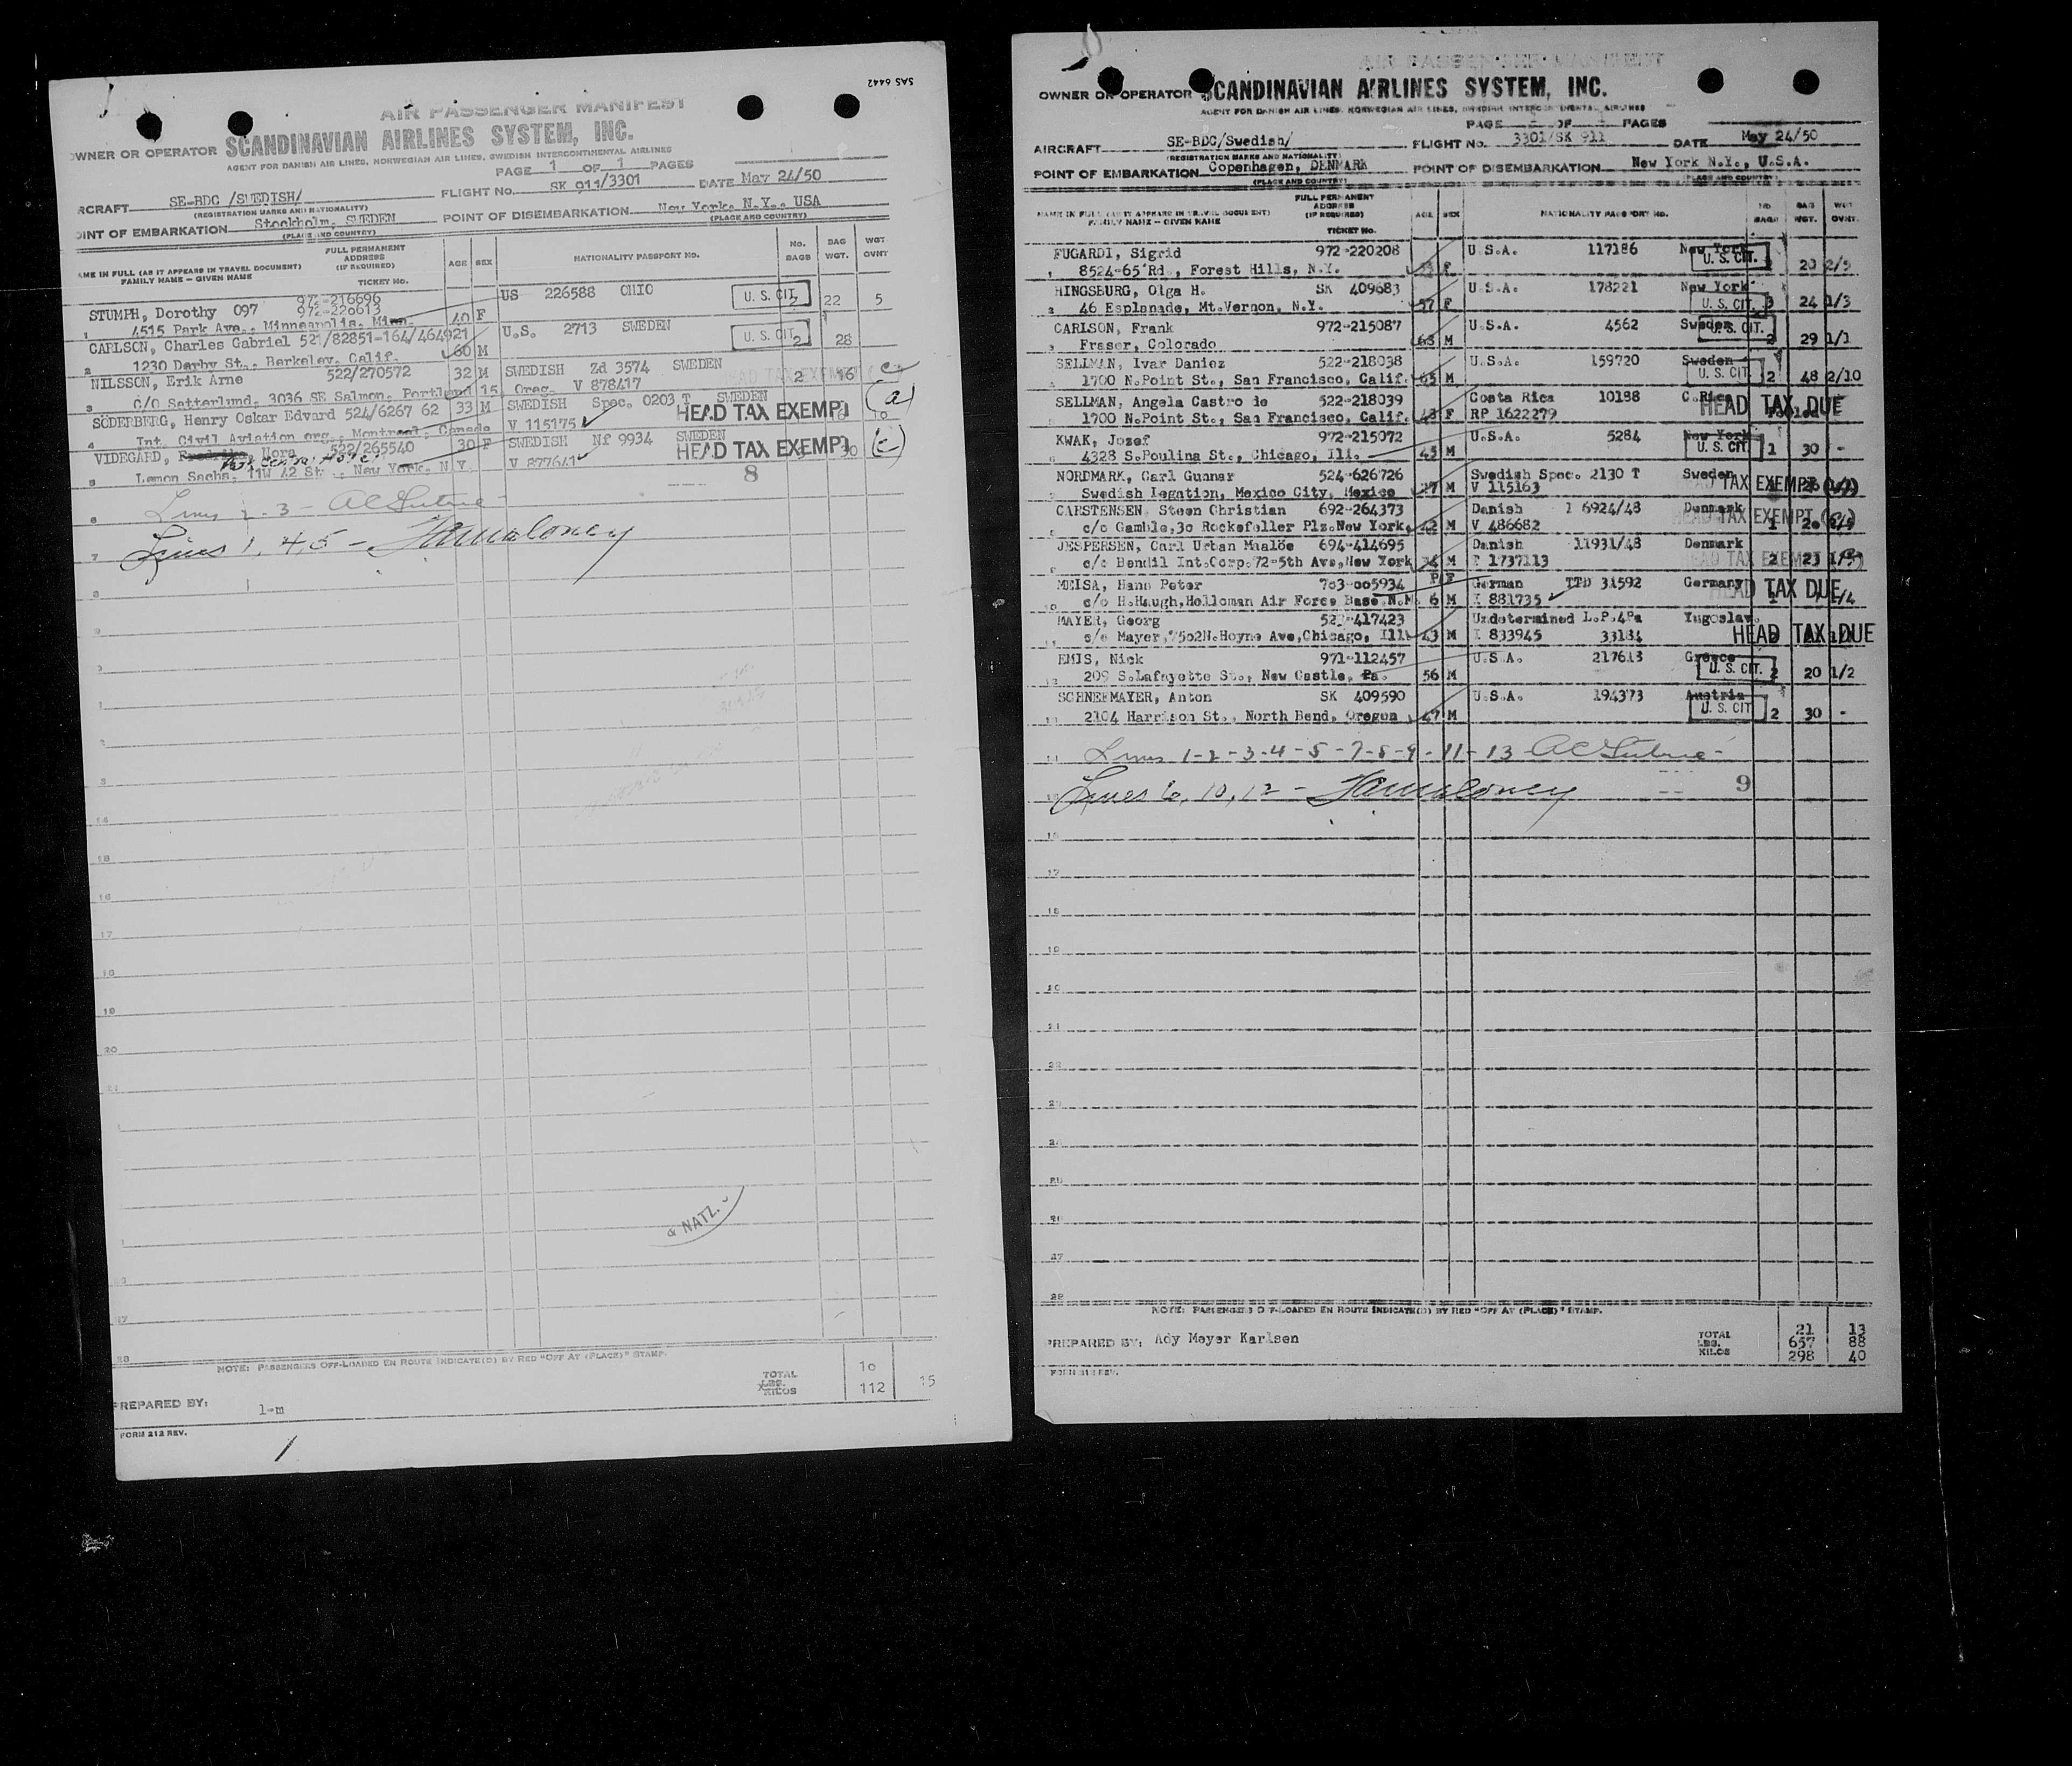 SAS 6442
AIR PASSENGER MANIFEST
OWNER OR OPERATOR SCANDINAVIAN AIRLINES SYSTEM, INC.
AGENT FOR DANISH AIR LINES, NORWEGIAN AIR LINES, SWEDISH INTERCONTINENTAL AIRLINES
PAGE 1 OF 1 PAGES
RCRAFT SE-BDC /SWEDISH/ FLIGHT No. SK 911/3301 DATE May 24/50
(REGISTRATION MARKS AND NATIONALITY)
OINT OF EMBARKATION Stockholm, SWEDEN POINT OF DISEMBARKATION New York, N.Y., USA
(PLACE AND COUNTRY) (PLACE AND COUNTRY)
AME IN FULL (AS IT APPEARS IN TRAVEL DOCUMENT) FAMILY NAME – GIVEN NAME FULL PERMANENT ADDRESS (IF REQUIRED) TICKET No. AGE SEX NATIONALITY PASSPORT NO. No. BAGS BAG WGT. WGT OVNT
STUMPH, Dorothy 097 972-216696 972-220613 40 F US 226588 OHIO U. S. CIT. 2 22 5
1 4515 Park Ave., Minneapolis, Minn.
CARLSON, Charles Gabriel 521/82851-164/464921 60 M U.S. 2713 SWEDEN U. S. CIT. 2 28
2 1230 Derby St., Berkeley, Calif.
NILSSON, Erik Arne 522/270572 32 M SWEDISH Zd 3574 SWEDEN HEAD TAX EXEMPT 2 16
3 c/o Satterlund, 3036 SE Salmon, Portland 15, Oreg. V 878417
SÖDERBERG, Henry Oskar Edvard 524/6267 62 33 M SWEDISH Spec. 0203 T SWEDEN HEAD TAX EXEMP (a)
4 Int. Civil Aviation org., Montreal, Canada V 115175
VIDEGARD, Nora 522/265540 30 F SWEDISH Nf 9934 SWEDEN HEAD TAX EXEMP
5 Lemon Sachs, 11W 42 St., New York, N Y. V 877641
8
Lines 2-3 -
Lines 1, 4, 5 -
& NATZ.
NOTE: PASSENGERS OFF-LOADED EN ROUTE INDICATE(D) BY RED "OFF AT (PLACE)" STAMP.
TOTAL 10
LBS.
KILOS 112 15
PREPARED BY: l-m
FORM 212 REV.
OWNER OR OPERATOR SCANDINAVIAN AIRLINES SYSTEM, INC.
AGENT FOR DANISH AIR LINES, NORWEGIAN AIR LINES, SWEDISH INTERCONTINENTAL AIRLINES
PAGE OF PAGES
AIRCRAFT SE-BDC/Swedish/ FLIGHT No. 3301/SK 911 DATE May 24/50
(REGISTRATION MARKS AND NATIONALITY)
POINT OF EMBARKATION Copenhagen, DENMARK POINT OF DISEMBARKATION New York N.Y., U.S.A.
(PLACE AND COUNTRY) (PLACE AND COUNTRY)
NAME IN FULL (AS IT APPEARS IN TRAVEL DOCUMENT) FAMILY NAME – GIVEN NAME FULL PERMANENT ADDRESS (IF REQUIRED) TICKET No. AGE SEX NATIONALITY PASSPORT NO. NO BAGS BAG WGT. WGT OVNT.
FUGARDI, Sigrid 972-220208 U.S.A. 117186 New York
1 8524-65 Rd., Forest Hills, N.Y. F U. S. CIT. 20 2/5
HINGSBURG, Olga H. SK 409683 U.S.A. 178221 New York
2 46 Esplanade, Mt.Vernon, N.Y. 57 F U. S. CIT. 3 24 1/3
CARLSON, Frank 972-215087 U.S.A. 4562 Sweden
3 Fraser, Colorado 63 M U. S. CIT. 2 29 1/1
SELLMAN, Ivar Daniez 522-218038 U.S.A. 159720 Sweden
4 1700 N.Point St., San Francisco, Calif. 65 M U. S. CIT. 2 48 2/10
SELLMAN, Angela Castro de 522-218039 Costa Rica 10138 C.Rica
1700 N.Point St., San Francisco, Calif. 43 F RP 1622279 HEAD TAX DUE
KWAK, Jozef 972-215072 U.S.A. 5284 New York
6 4328 S.Poulina St., Chicago, Ill. 45 M U. S. CIT. 1 30 -
NORDMARK, Carl Gunnar 524-626726 Swedish Spec. 2130 T Sweden
Swedish Legation, Mexico City, Mexico 27 M V 115163 HEAD TAX EXEMPT
CARSTENSEN, Steen Christian 692-264373 Danish 1 6924/48 Denmark
c/o Gamble,30 Rockefeller Plz.New York, 42 M V 486682 HEAD TAX EXEMPT 1 20
JESPERSEN, Carl Urban Maaløe 694-414695 Danish 11931/48 Denmark
c/o Bendil Int.Corp.72-5th Ave,New York M T 1737113 HEAD TAX EXEMPT 2 23
MEISA, Hans Peter 703-005934 German TTD 31592 Germany
10 c/o H.Haugh,Holloman Air Force Base.N.M. 6 M I 881735 HEAD TAX DUE
MAYER, Georg 522-417423 Undetermined L.P.4Pa Yugoslav.
11 c/o Mayer,7502N.Hoyne Ave,Chicago, Ill. 43 M I 833945 33184 HEAD TAX DUE
EMIS, Nick 971-112457 U.S.A. 217613 Greece
12 209 S.Lafayette St., New Castle, Pa. 56 M U. S. CIT. 2 20 1/2
SCHNEEMAYER, Anton SK 409590 U.S.A. 194373 Austria
13 2104 Harrison St., North Bend, Oregon 47 M U. S. CIT 2 30 -
Lines 1-2-3-4-5-7-8-9-11-13
Lines 6, 10, 12 -
9
NOTE: PASSENGERS OFF-LOADED EN ROUTE INDICATE(D) BY RED "OFF AT (PLACE)" STAMP.
PREPARED BY: Ady Meyer Karlsen
TOTAL 21 13
LBS. 657 88
KILOS 298 40
FORM 212 REV.